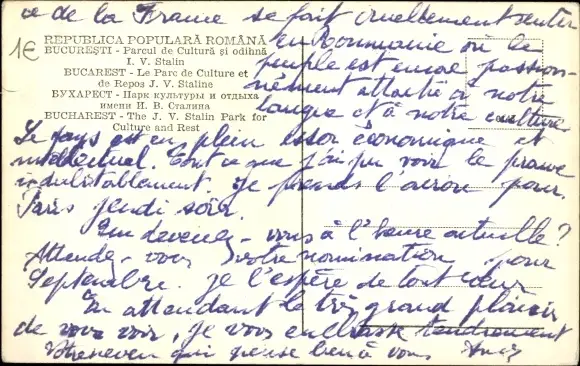 ce de la France se fait cruellement sentir
1€
REPUBLICA POPULARĂ ROMÂNĂ
BUCUREȘTI - Parcul de Cultură și odihnă
I. V. Stalin
BUCAREST - Le Parc de Culture et
de Repos J. V. Staline
БУХАРЕСТ - Парк культуры и отдыха
имени И. В. Сталина
BUCHAREST - The J. V. Stalin Park for
Culture and Rest
en Roumanie où le
peuple est encore passion-
nément attaché à notre
langue et à notre culture.
Le pays est en plein essor économique et
intellectuel. Tout ce que j'ai pu voir le prouve
indubitablement. Je prends l'avion pour
Paris jeudi soir.
Que devenez-vous à l'heure actuelle?
Attendez-vous votre nomination pour
Septembre. Je l'espère de tout cœur
En attendant le très grand plaisir
de vous voir, je vous embrasse tendrement
qui pense bien à vous